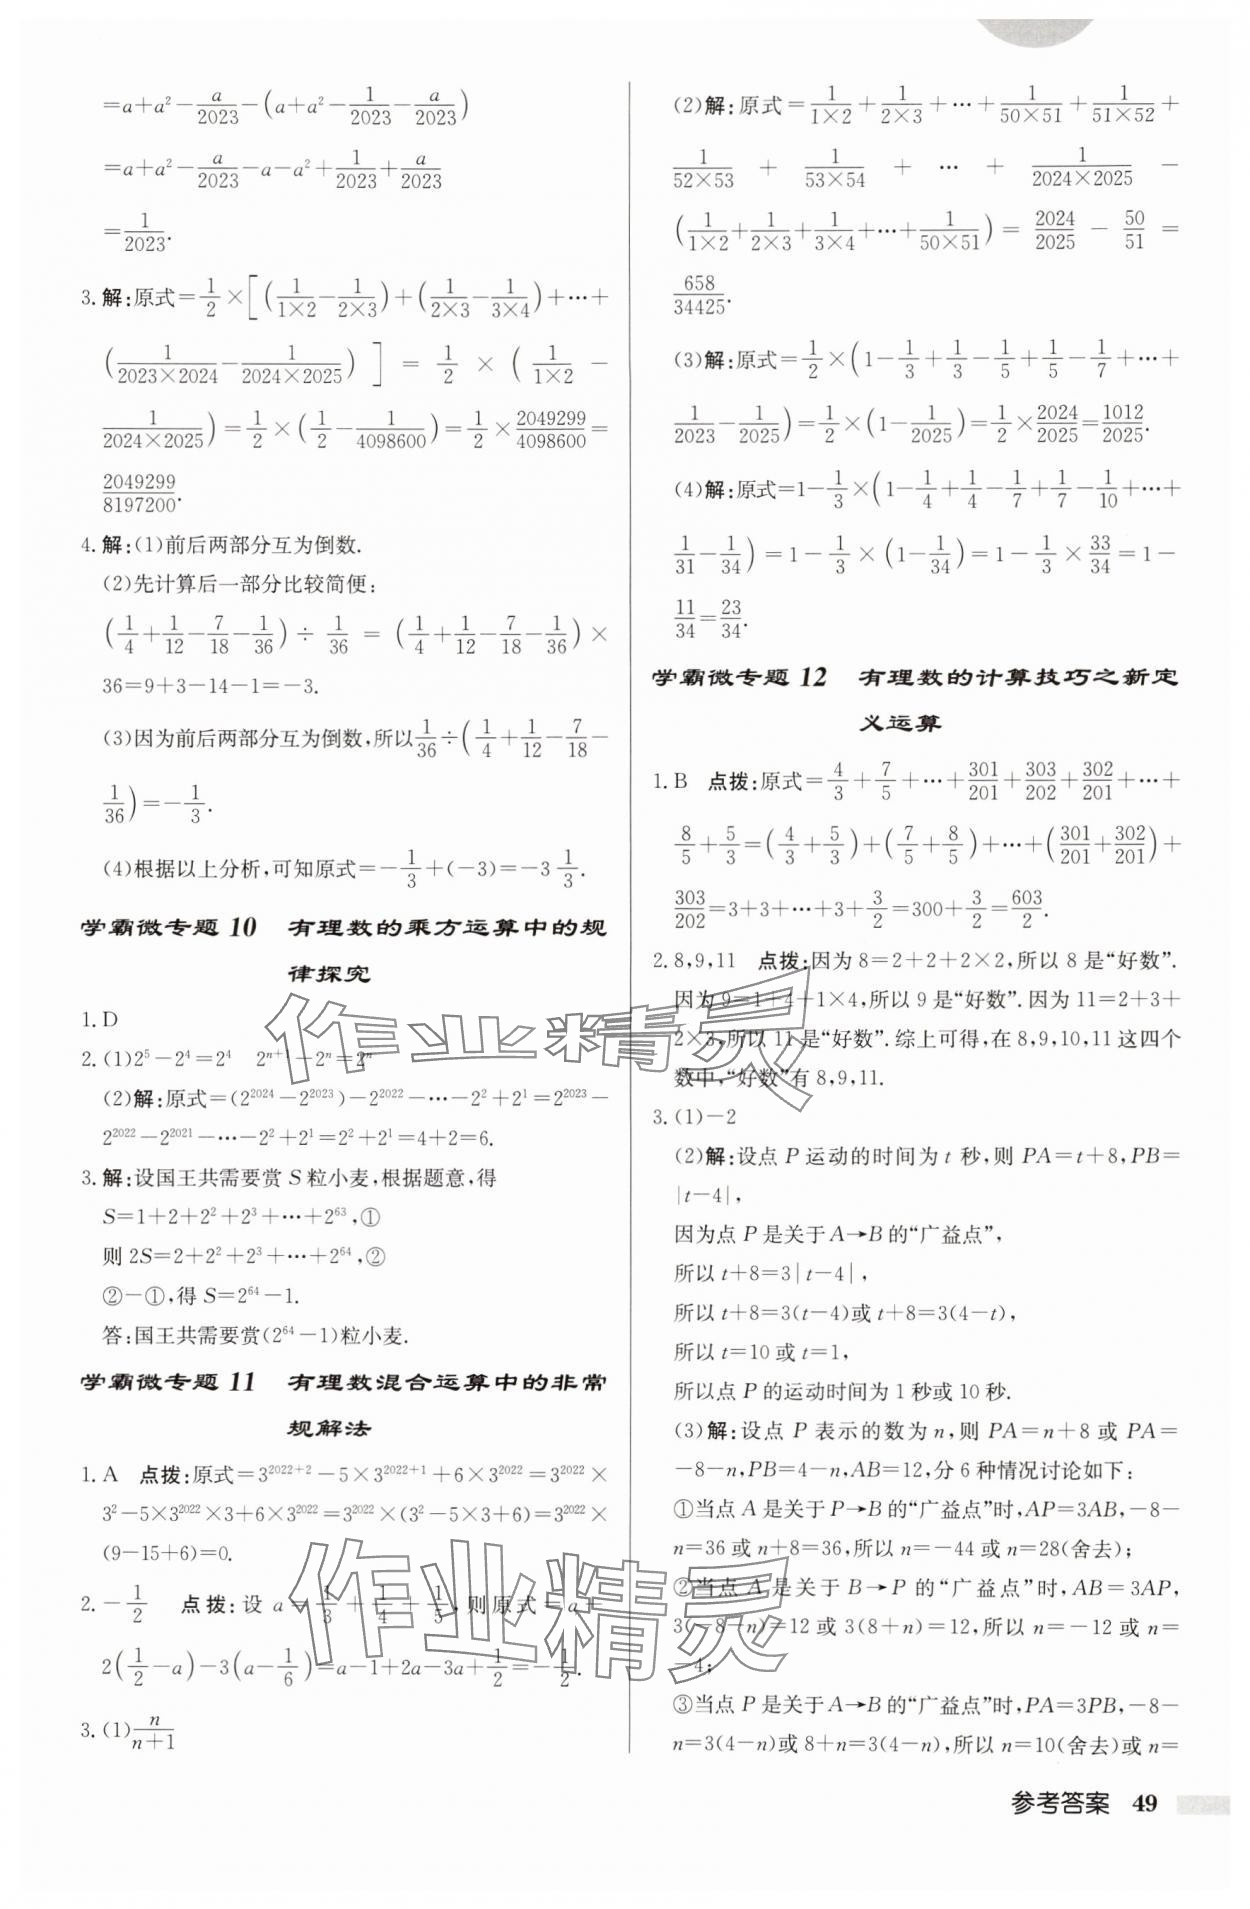 =a+a²-a/2023-(a+a²-1/2023-a/2023)
=a+a²-a/2023-a-a²+1/2023+a/2023
=1/2023.
3.解:原式=1/2×[(1/(1×2)-1/(2×3))+(1/(2×3)-1/(3×4))+…+
(1/(2023×2024)-1/(2024×2025))]=1/2×(1/(1×2)-
1/(2024×2025))=1/2×(1/2-1/4098600)=1/2×2049299/4098600=
2049299/8197200.
4.解:(1)前后两部分互为倒数.
(2)先计算后一部分比较简便:
(1/4+1/12-7/18-1/36)÷1/36=(1/4+1/12-7/18-1/36)×
36=9+3-14-1=-3.
(3)因为前后两部分互为倒数,所以1/36÷(1/4+1/12-7/18-
1/36)=-1/3.
(4)根据以上分析,可知原式=-1/3+(-3)=-3 1/3.
学霸微专题10 有理数的乘方运算中的规
律探究
1.D
2.(1)2⁵-2⁴=2⁴ 2ⁿ⁺¹-2ⁿ=2ⁿ
(2)解:原式=(2²⁰²⁴-2²⁰²³)-2²⁰²²-…-2²+2¹=2²⁰²³-
2²⁰²²-2²⁰²¹-…-2²+2¹=2²+2¹=4+2=6.
3.解:设国王共需要赏S粒小麦,根据题意,得
S=1+2+2²+2³+…+2⁶³,①
则2S=2+2²+2³+…+2⁶⁴,②
②-①,得S=2⁶⁴-1.
答:国王共需要赏(2⁶⁴-1)粒小麦.
学霸微专题11 有理数混合运算中的非常
规解法
1.A 点拨:原式=3²⁰²²⁺²-5×3²⁰²²⁺¹+6×3²⁰²²=3²⁰²²×
3²-5×3²⁰²²×3+6×3²⁰²²=3²⁰²²×(3²-5×3+6)=3²⁰²²×
(9-15+6)=0.
2.-1/2 点拨:设a=1/3+1/4+1/5,则原式=a+
2(1/2-a)-3(a-1/6)=a-1+2a-3a+1/2=-1/2.
3.(1)n/(n+1)
(2)解:原式=1/(1×2)+1/(2×3)+…+1/(50×51)+1/(51×52)+
1/(52×53)+1/(53×54)+…+1/(2024×2025)-
(1/(1×2)+1/(2×3)+1/(3×4)+…+1/(50×51))=2024/2025-50/51=
658/34425.
(3)解:原式=1/2×(1-1/3+1/3-1/5+1/5-1/7+…+
1/2023-1/2025)=1/2×(1-1/2025)=1/2×2024/2025=1012/2025.
(4)解:原式=1-1/3×(1-1/4+1/4-1/7+1/7-1/10+…+
1/31-1/34)=1-1/3×(1-1/34)=1-1/3×33/34=1-
11/34=23/34.
学霸微专题12 有理数的计算技巧之新定
义运算
1.B 点拨:原式=4/3+7/5+…+301/201+303/202+302/201+…+
8/5+5/3=(4/3+5/3)+(7/5+8/5)+…+(301/201+302/201)+
303/202=3+3+…+3+3/2=300+3/2=603/2.
2.8,9,11 点拨:因为8=2+2+2×2,所以8是“好数”.
因为9=1+4+1×4,所以9是“好数”.因为11=2+3+
2×3,所以11是“好数”.综上可得,在8,9,10,11这四个
数中,“好数”有8,9,11.
3.(1)-2
(2)解:设点P运动的时间为t秒,则PA=t+8,PB=
|t-4|,
因为点P是关于A→B的“广益点”,
所以t+8=3|t-4|,
所以t+8=3(t-4)或t+8=3(4-t),
所以t=10或t=1,
所以点P的运动时间为1秒或10秒.
(3)解:设点P表示的数为n,则PA=n+8或PA=
-8-n,PB=4-n,AB=12,分6种情况讨论如下:
①当点A是关于P→B的“广益点”时,AP=3AB,-8-
n=36或n+8=36,所以n=-44或n=28(舍去);
②当点A是关于B→P的“广益点”时,AB=3AP,
3(-8-n)=12或3(8+n)=12,所以n=-12或n=
-4;
③当点P是关于A→B的“广益点”时,PA=3PB,-8-
n=3(4-n)或8+n=3(4-n),所以n=10(舍去)或n=
参考答案 49
作业精灵
作业精灵